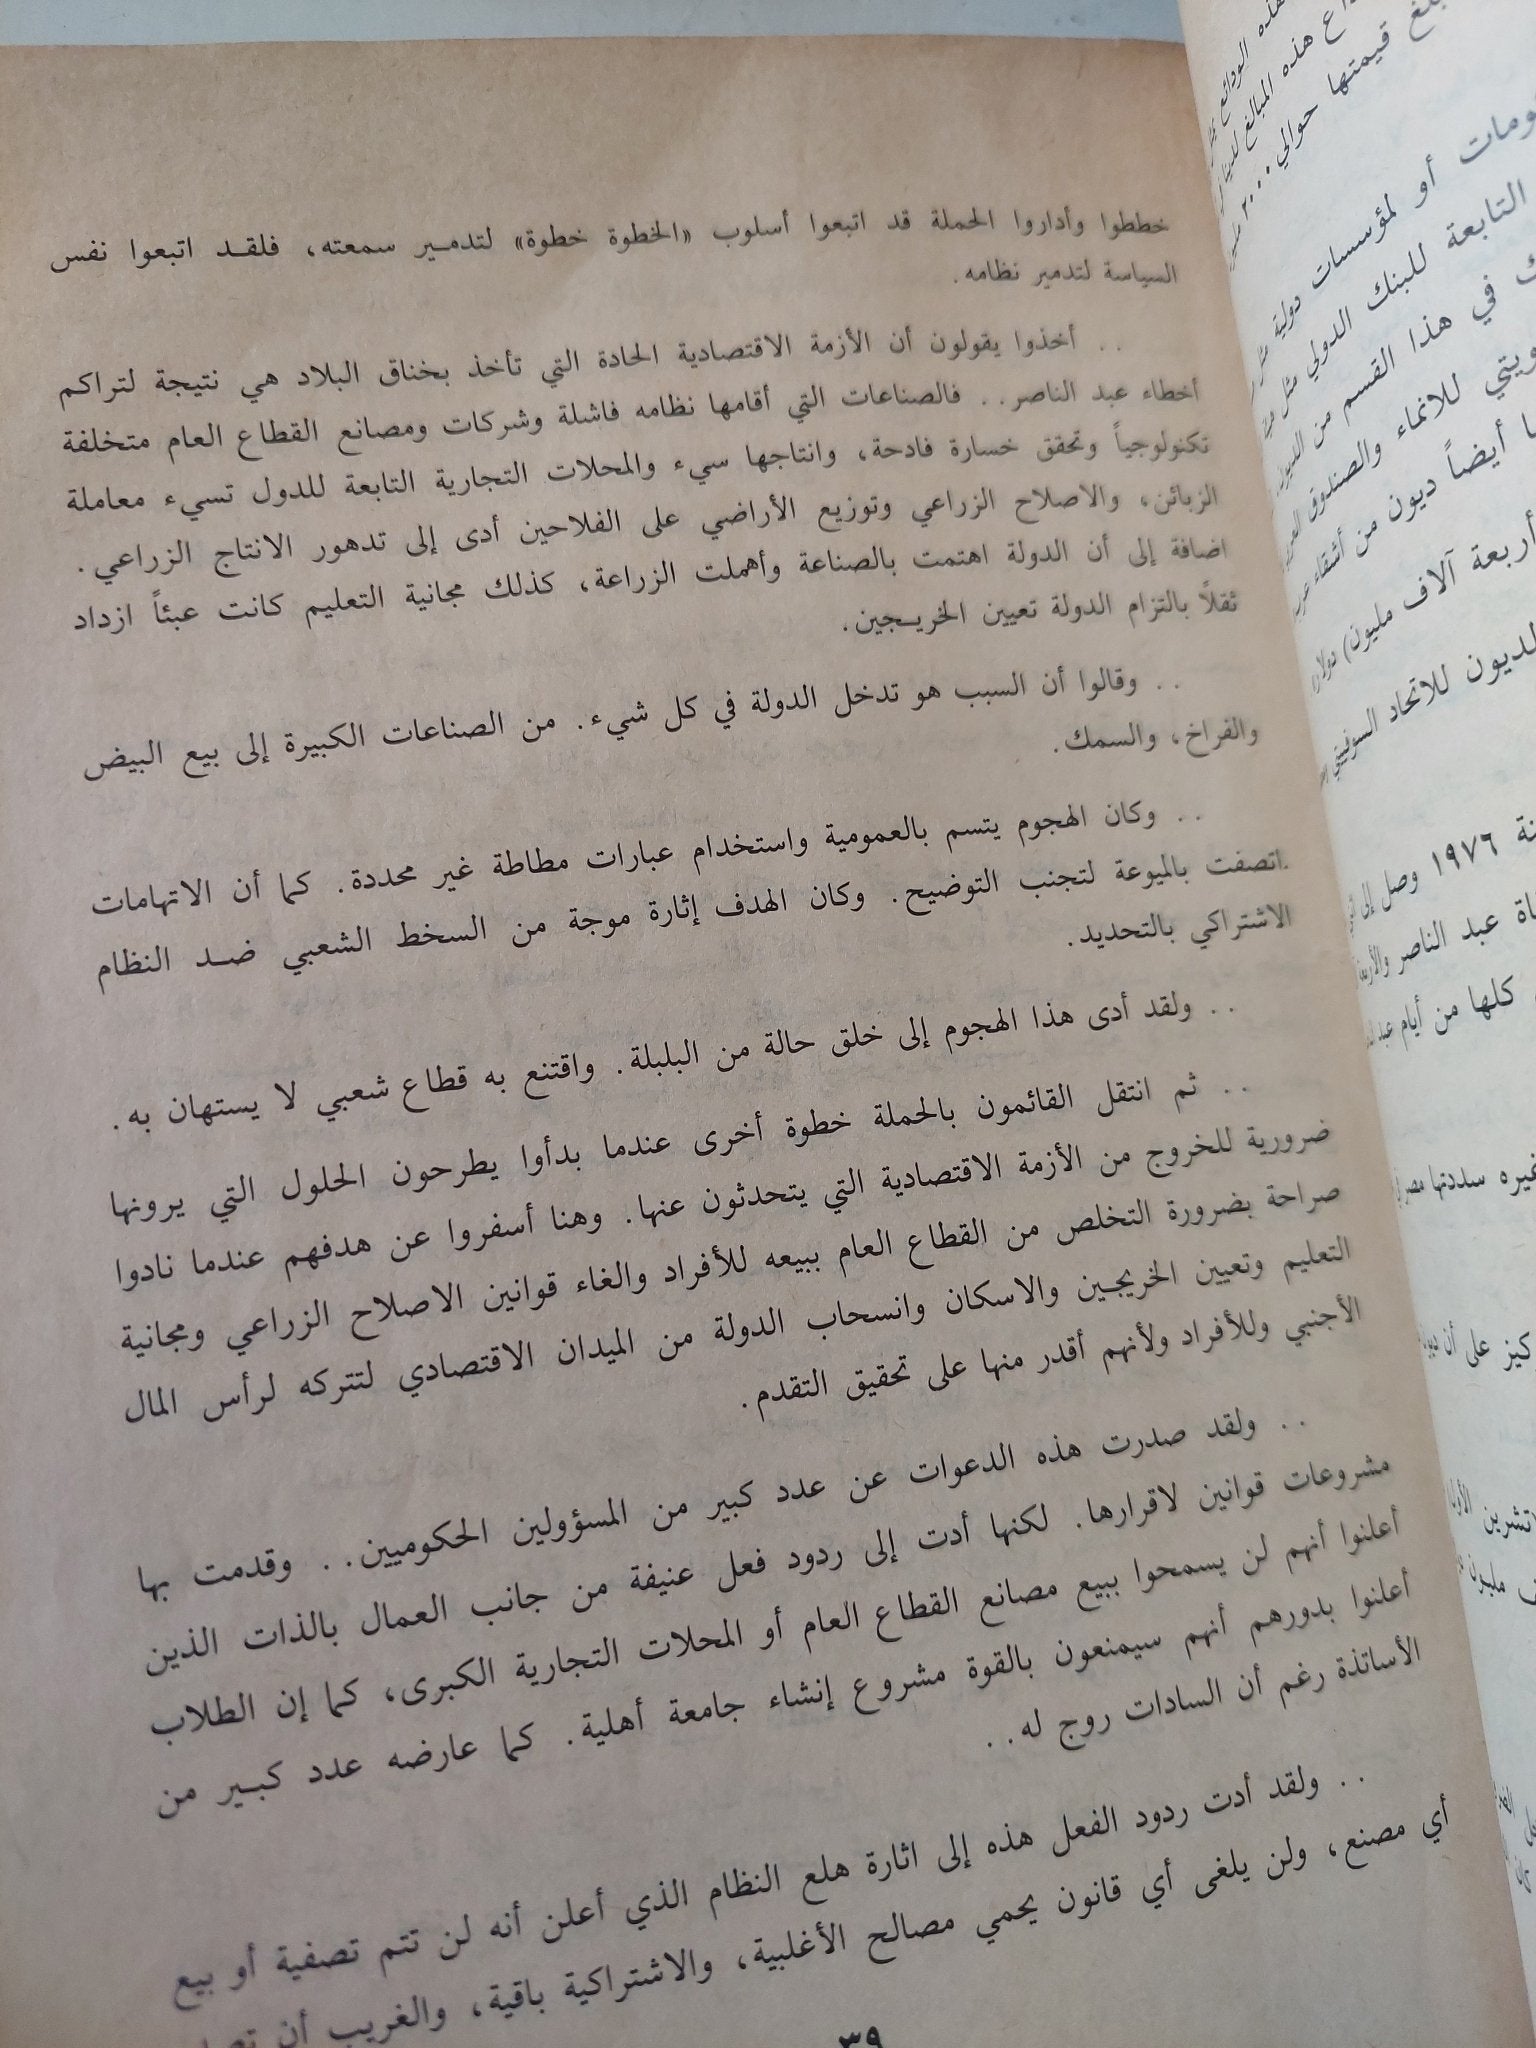 خططوا وأداروا الحملة قد اتبعوا أسلوب «الخطوة خطوة» لتدمير سمعته، فلقد اتبعوا نفس
السياسة لتدمير نظامه.
. . أخذوا يقولون أن الأزمة الاقتصادية الحادة التي تأخذ بخناق البلاد هي نتيجة لتراكم
أخطاء عبد الناصر. . فالصناعات التي أقامها نظامه فاشلة وشركات ومصانع القطاع العام متخلفة
تكنولوجياً وتحقق خسارة فادحة، وانتاجها سيء والمحلات التجارية التابعة للدول تسيء معاملة
الزبائن، والاصلاح الزراعي وتوزيع الأراضي على الفلاحين أدى إلى تدهور الانتاج الزراعي.
اضافة إلى أن الدولة اهتمت بالصناعة وأهملت الزراعة، كذلك مجانية التعليم كانت عبئاً ازداد
ثقلاً بالتزام الدولة تعيين الخريجين.
. . وقالوا أن السبب هو تدخل الدولة في كل شيء. من الصناعات الكبيرة إلى بيع البيض
والفراخ، والسمك.
. . وكان الهجوم يتسم بالعمومية واستخدام عبارات مطاطة غير محددة. كما أن الاتهامات
اتصفت بالميوعة لتجنب التوضيح. وكان الهدف إثارة موجة من السخط الشعبي ضد النظام
الاشتراكي بالتحديد.
. . ولقد أدى هذا الهجوم إلى خلق حالة من البلبلة. واقتنع به قطاع شعبي لا يستهان به.
. . ثم انتقل القائمون بالحملة خطوة أخرى عندما بدأوا يطرحون الحلول التي يرونها
ضرورية للخروج من الأزمة الاقتصادية التي يتحدثون عنها. وهنا أسفروا عن هدفهم عندما نادوا
صراحة بضرورة التخلص من القطاع العام ببيعه للأفراد والغاء قوانين الاصلاح الزراعي ومجانية
التعليم وتعيين الخريجين والاسكان وانسحاب الدولة من الميدان الاقتصادي لتتركه لرأس المال
الأجنبي وللأفراد ولأنهم أقدر منها على تحقيق التقدم.
. . ولقد صدرت هذه الدعوات عن عدد كبير من المسؤولين الحكوميين. . وقدمت بها
مشروعات قوانين لاقرارها. لكنها أدت إلى ردود فعل عنيفة من جانب العمال بالذات الذين
أعلنوا أنهم لن يسمحوا ببيع مصانع القطاع العام أو المحلات التجارية الكبرى، كما إن الطلاب
أعلنوا بدورهم أنهم سيمنعون بالقوة مشروع إنشاء جامعة أهلية. كما عارضه عدد كبير من
الأساتذة رغم أن السادات روج له. .
. . ولقد أدت ردود الفعل هذه إلى اثارة هلع النظام الذي أعلن أنه لن تتم تصفية أو بيع
أي مصنع، ولن يلغى أي قانون يحمي مصالح الأغلبية، والاشتراكية باقية، والغريب أن
٣٩
هذه الودائع
هذه المبالغ
قيمتها حوالي ٢٠٠٠
أو لمؤسسات دولية
التابعة للبنك الدولي مثل
في هذا القسم من
للانماء والصندوق
أيضاً ديون من أشقاء
أربعة آلاف مليون)
للاتحاد السوفييتي
١٩٧٦ وصل إلى
عبد الناصر
كلها من أيام
سددتها مصر
على أن
تشرين